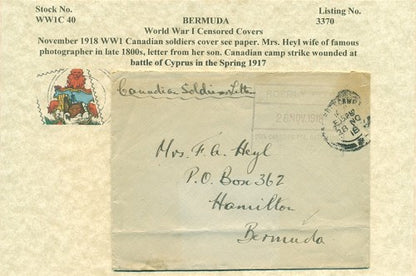 Stock No.
WW1C 40
BERMUDA
World War I Censored Covers
Listing No.
3370
November 1918 WW1 Canadian soldiers cover see paper. Mrs. Heyl wife of famous
photographer in late 1800s, letter from her son. Canadian camp strike wounded at
battle of Cyprus in the Spring 1917
Canadian Soldiers Letter
28 NOV 1918
28 NO
18
Mrs. F. A. Heyl
P.O. Box 362
Hamilton
Bermuda